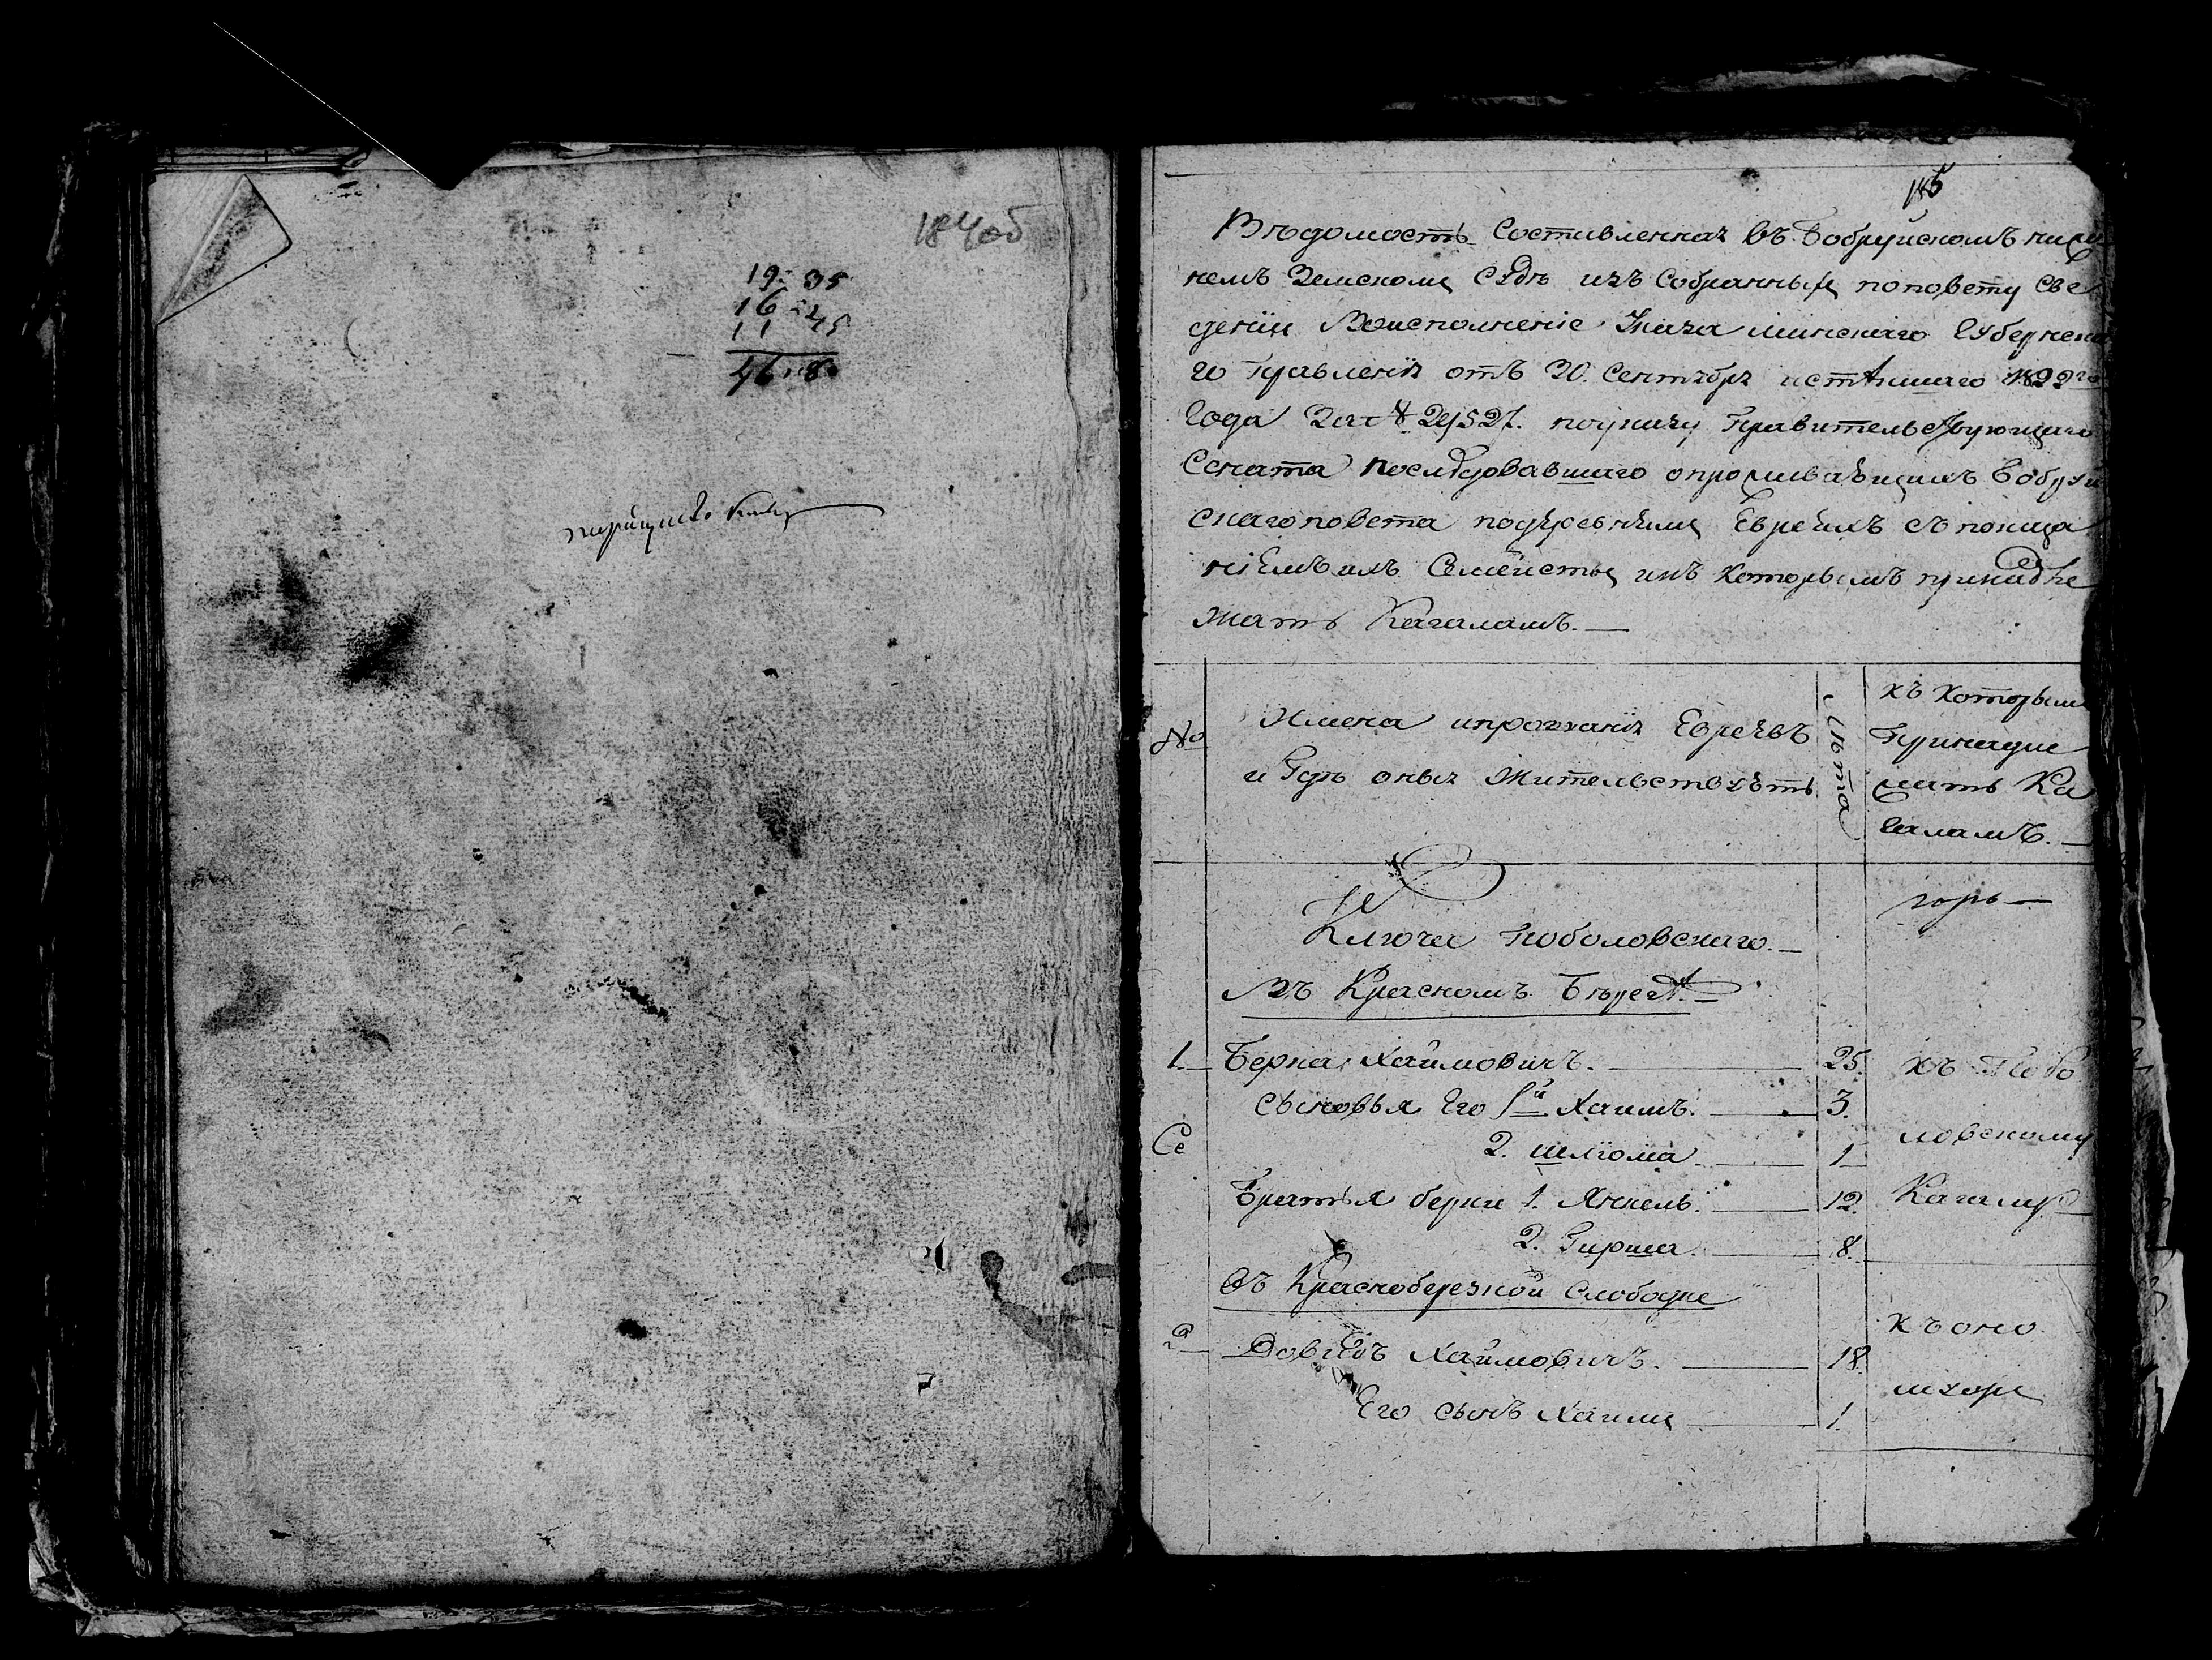 184об
19: 35
16
11 45
46
185
Вѣдомость Составленная въ Бобруйскомъ ниж
немъ Земскомъ Судѣ изъ Собранныхъ поповету Све
деніи Воисполненіе Указа минскаго Губернска
го Правленія отъ 30. Сентября истѣкшаго 1822го
Года За № 29527. поуказу Правительствующаго
Сената Последовавшаго опроживающихъ Бобруй
скагоповета подеревнямъ Евреяхъ съ показа
ніемъ ихъ Семействъ икъ Которымъ принадле
жатъ Кагаламъ.
№
Имена ипрозванія Евреевъ
и Где оныя Жительствуютъ
Лѣта
къ Которым
Принадле
жатъ Ка
галамъ.
Ключа Поболовскаго.
Въ Красномъ Берегѣ.
1. Берка Хаимовичъ. 25. къ Побо
сыновья Его 1й Хаимъ. 3.
Се 2. шліома 1 ловскому
Братья берки 1. Янкель. 12. Кагалу
2. Гирша. 8.
Въ Краснобережной Слободке
2 Довидъ Хаимовичъ. 18. къ оно
мужъ
Его сынъ Хаимъ 1.